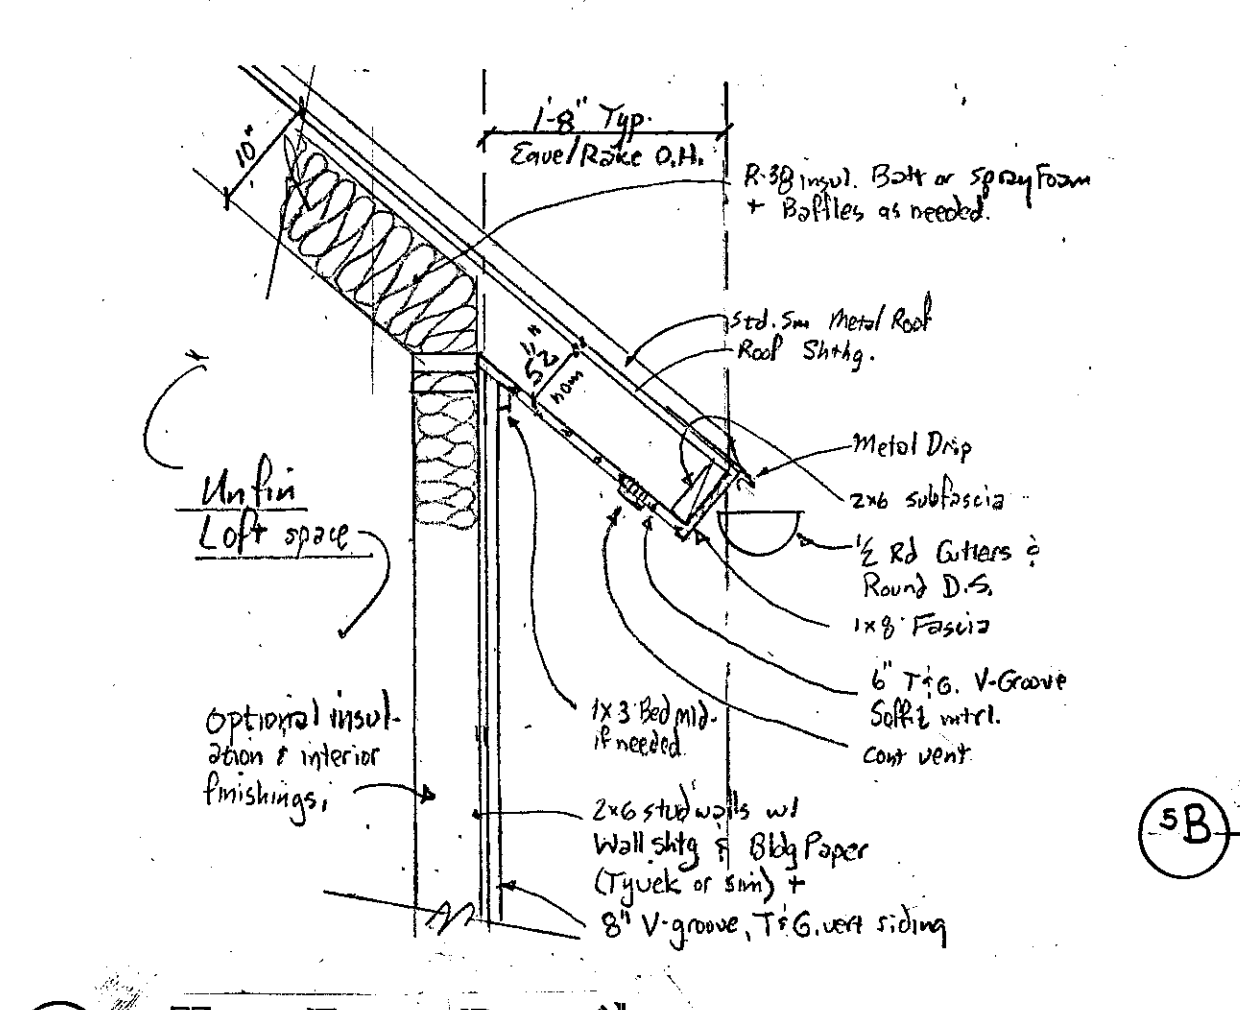 1'-8" Typ.
Eave/Rake O.H.
10"
R-38 insul. Batt or spray Foam
+ Baffles as needed.
Std. Sm Metal Roof
Roof Shthg.
5½"
nom
Metal Drip
2x6 subfascia
½ Rd Gutters &
Round D.S.
1x8 Fascia
6" T&G. V-Groove
Soffit mtrl.
cont vent
Unfin
Loft space
optional insul-
ation & interior
finishings,
1x3 Bed mld.
if needed.
2x6 stud walls w/
Wall shtg & Bldg Paper
(Tyvek or sim) +
8" V-groove, T&G. vert siding
5B